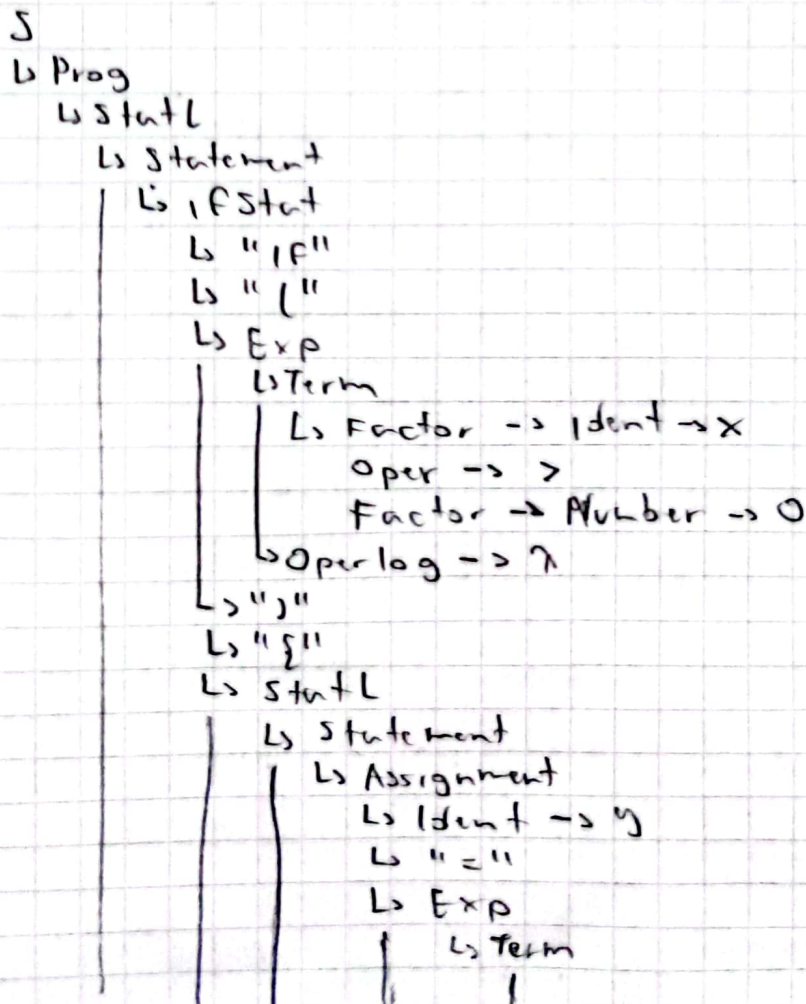 S
↳ Prog
↳ StatL
↳ Statement
↳ IfStat
↳ "IF"
↳ "("
↳ Exp
↳ Term
↳ Factor -> Ident -> x
Oper -> >
Factor -> Number -> 0
↳ Operlog -> λ
↳ ")"
↳ "{"
↳ StatL
↳ Statement
↳ Assignment
↳ Ident -> y
↳ "="
↳ Exp
↳ Term